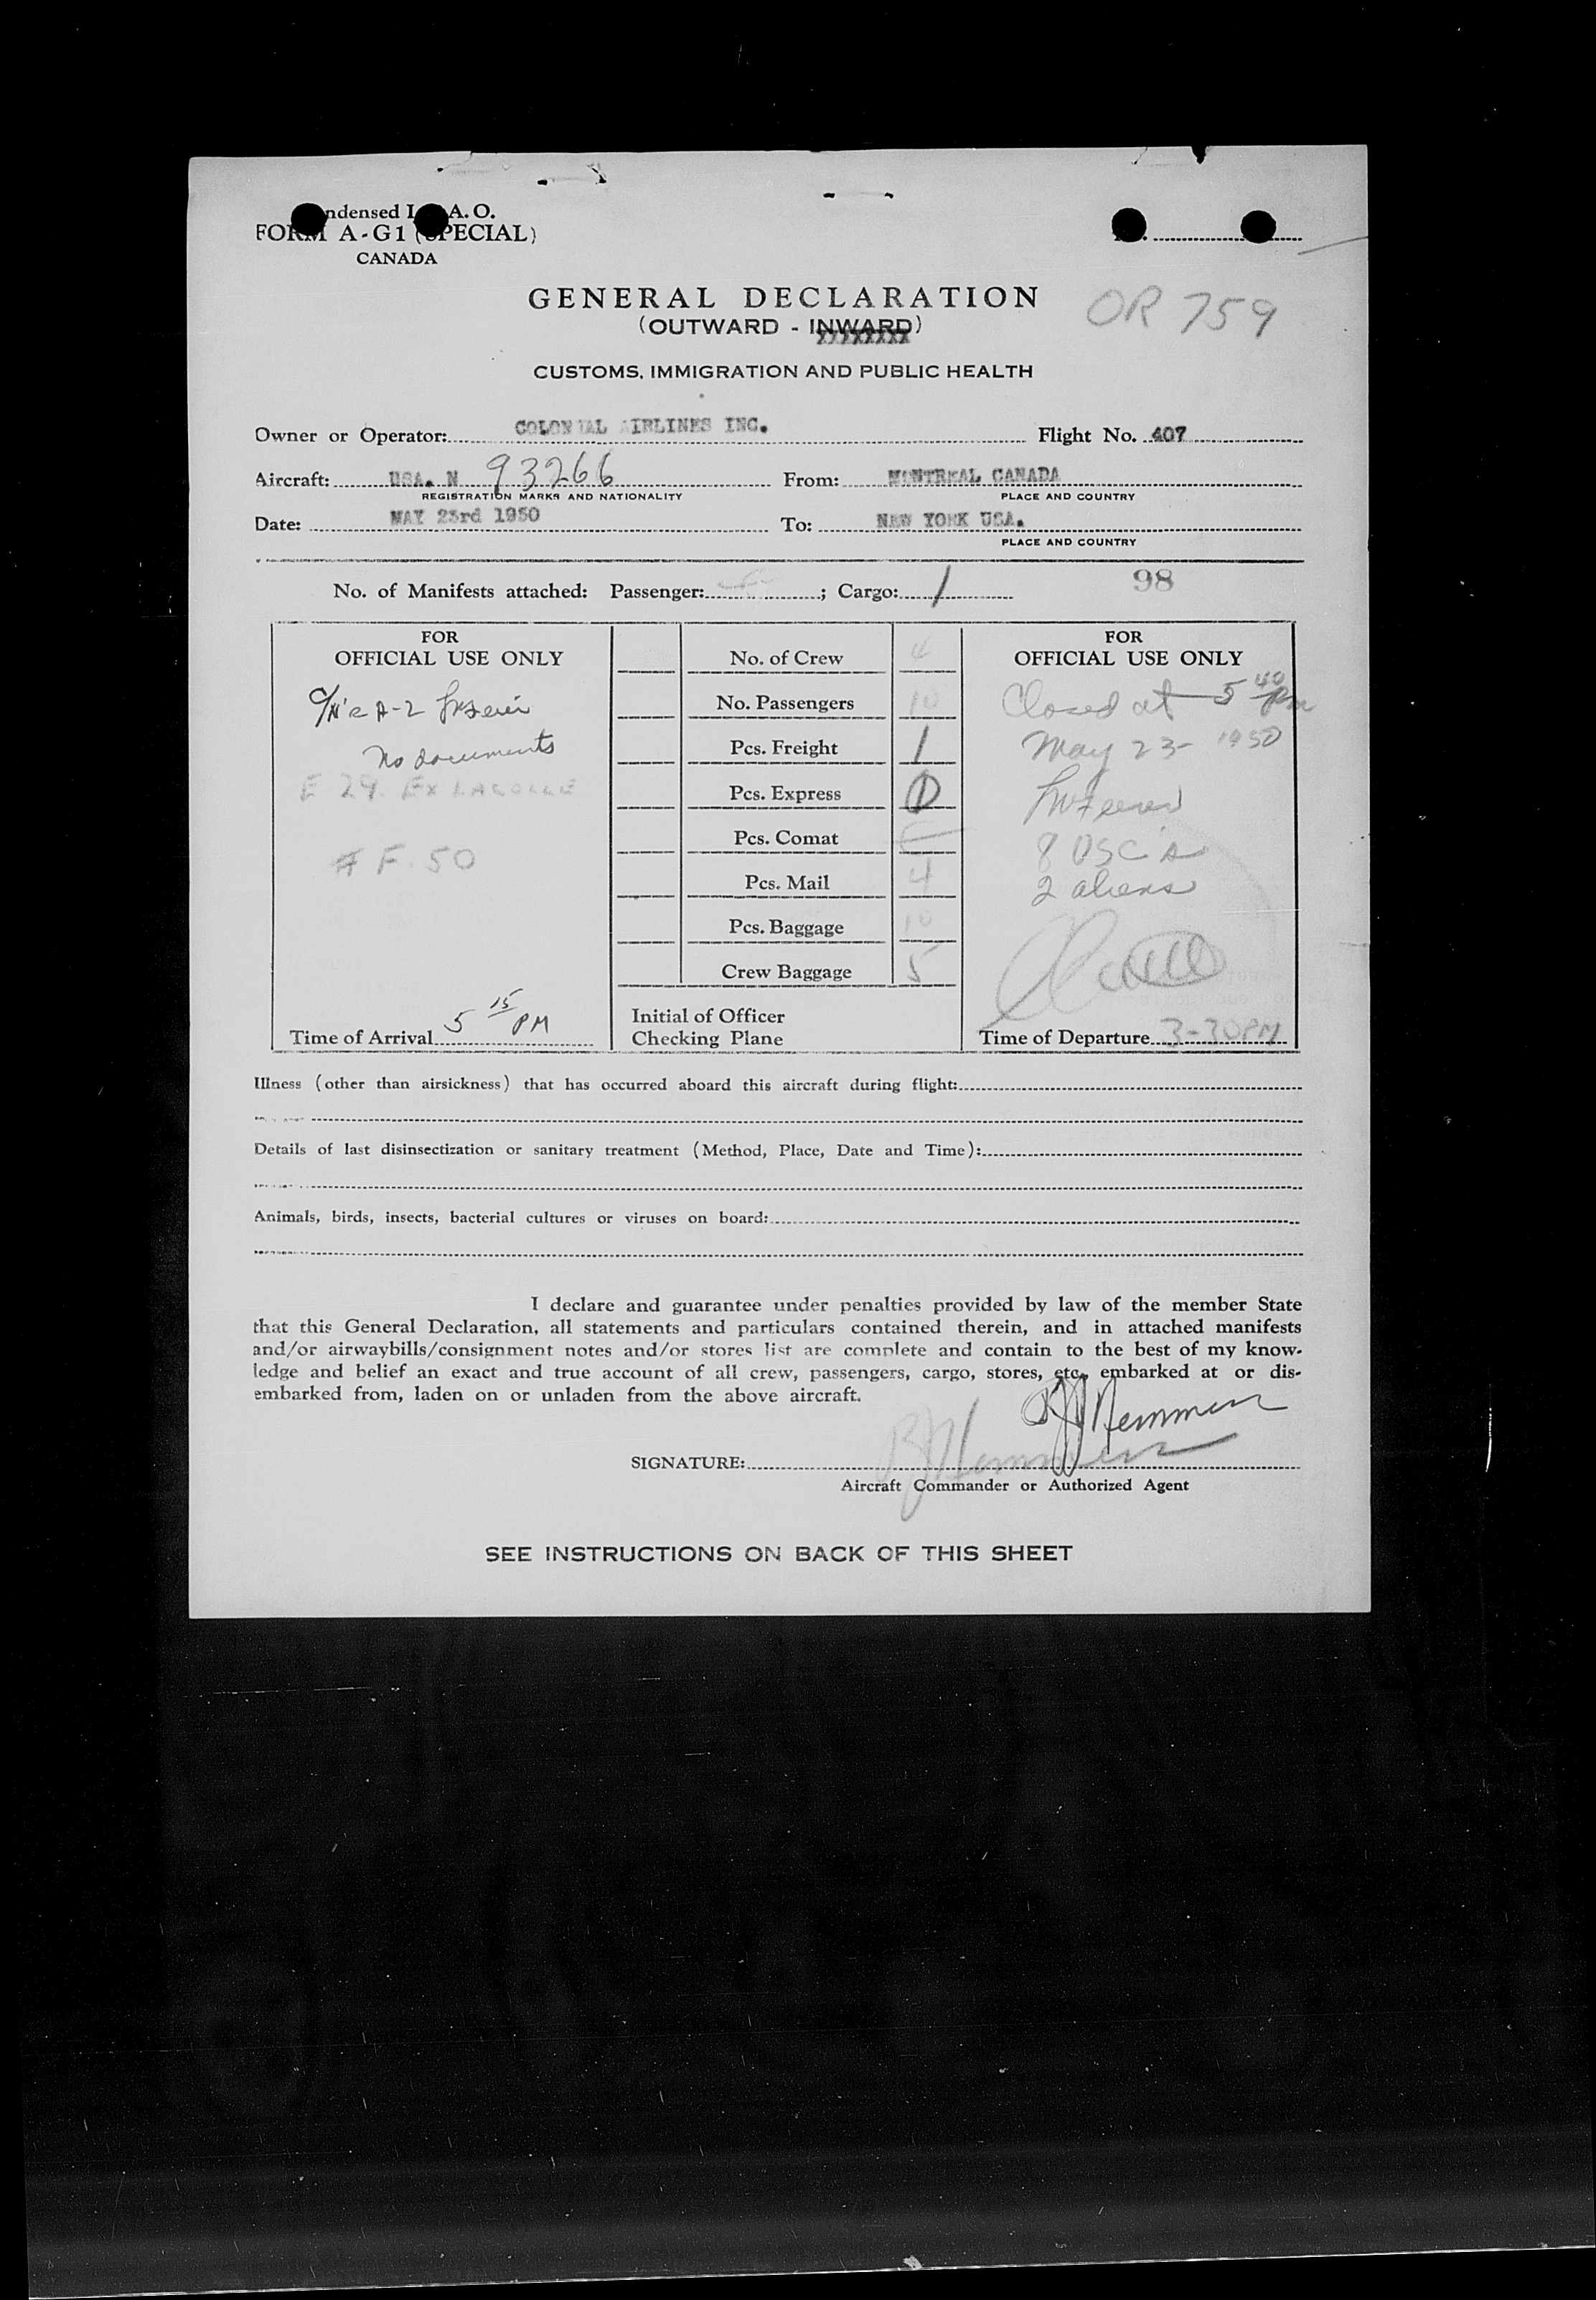 ndensed I A. O.
FORM A-G1 (SPECIAL)
CANADA
GENERAL DECLARATION
OR 759
(OUTWARD - INWARD)
CUSTOMS, IMMIGRATION AND PUBLIC HEALTH
Owner or Operator: COLONIAL AIRLINES INC. Flight No. 407
Aircraft: USA. N 93266 From: MONTREAL CANADA
REGISTRATION MARKS AND NATIONALITY PLACE AND COUNTRY
Date: MAY 23rd 1950 To: NEW YORK USA.
PLACE AND COUNTRY
No. of Manifests attached: Passenger: ; Cargo: 1 98
FOR
OFFICIAL USE ONLY
A-2
No documents
E 29. Ex LACOLLE
F. 50
Time of Arrival 5 15 PM
No. of Crew 4
No. Passengers 10
Pcs. Freight 1
Pcs. Express
Pcs. Comat
Pcs. Mail 4
Pcs. Baggage 10
Crew Baggage 5
Initial of Officer
Checking Plane
FOR
OFFICIAL USE ONLY
Closed at 5 40 pm
May 23 - 1950
8 USC's
2 aliens
Time of Departure 3-30PM
Illness (other than airsickness) that has occurred aboard this aircraft during flight:
Details of last disinsectization or sanitary treatment (Method, Place, Date and Time):
Animals, birds, insects, bacterial cultures or viruses on board:
I declare and guarantee under penalties provided by law of the member State
that this General Declaration, all statements and particulars contained therein, and in attached manifests
and/or airwaybills/consignment notes and/or stores list are complete and contain to the best of my know-
ledge and belief an exact and true account of all crew, passengers, cargo, stores, etc., embarked at or dis-
embarked from, laden on or unladen from the above aircraft.
SIGNATURE:
Aircraft Commander or Authorized Agent
SEE INSTRUCTIONS ON BACK OF THIS SHEET